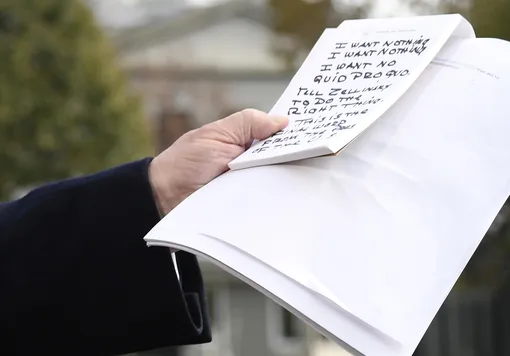 I WANT NOTHING
I WANT NOTHING
I WANT NO
QUID PRO QUO.
TELL ZELLINSKY
TO DO THE
RIGHT THING.
THIS IS THE
FINAL WORD
FROM THE PRES
OF THE U.S.